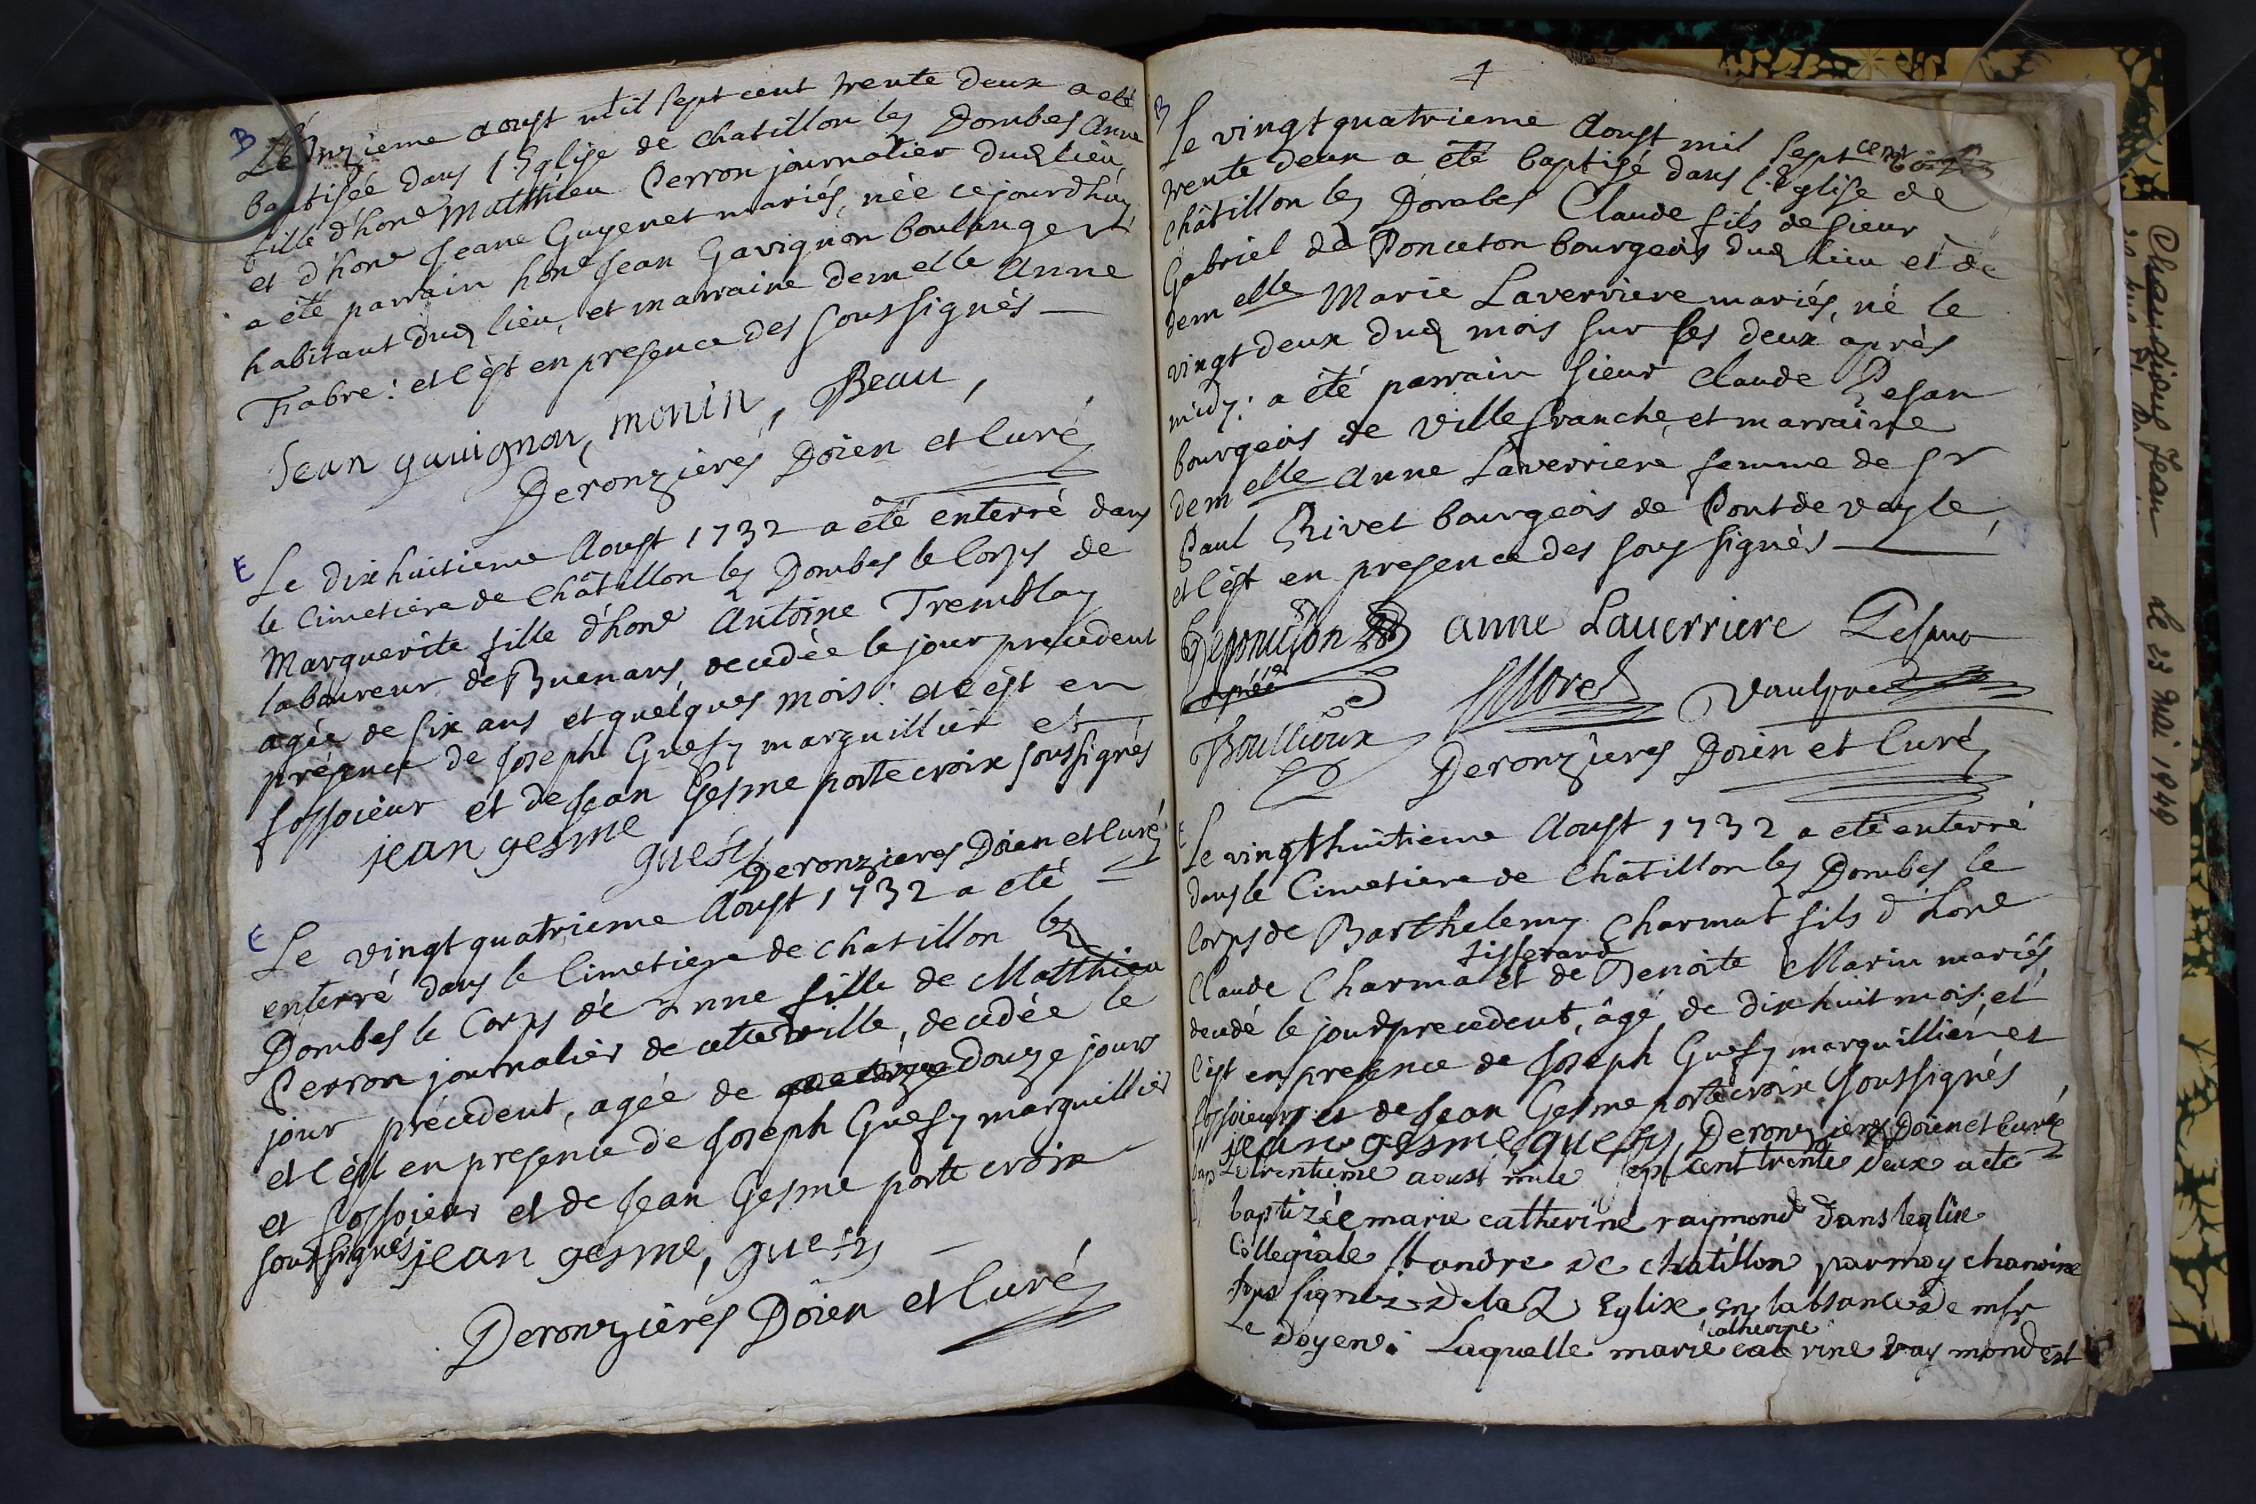 B
Le Onzieme Aoust mil sept cent trente deux a eté
baptisée dans l'Eglise de Chatillon les Dombes Anne
fille d'hone Matthieu Perron journalier dud lieu
et d'hone Jeane Guyenet mariés, née ce jourdhuy
a été parrain hone Jean Gavignon boulanger
habitant dud lieu, et marraine demelle Anne
Fabre: et c'est en presence des soussignés
Jean gauignon, monin, Beau,
Deronzieres Doien et Curé
E
Le dixhuitieme Aoust 1732 a été enterré dans
le Cimetiere de Châtillon les Dombes le Corps de
Marguerite fille d'hone Antoine Tremblay
laboureur de Buenans, decedée le jour precedent
agée de six ans et quelques mois: et c'est en
présence de Joseph Guesy marguillier et
fossoieur et de Jean Gesme porte croix soussignés
jean gesme
guesy
Deronzieres Doien et Curé
E
Le vingt quatrieme Aoust 1732 a eté
enterré dans le Cimetiere de chatillon les
Dombes le Corps de Anne fille de Matthieu
Perron journalier de cette ville, decedée le
jour précedent, agée de douze jours
et c'est en presence de Joseph Guesy marguillier
et fossoieur et de Jean Gesme porte croix
soussignés jean gesme, guesy
Deronzieres Doien et Curé
4
B
Le vingt quatrieme Aoust mil sept cent
trente deux a été baptisé dans l'Eglise de
Châtillon les Dombes Claude fils de sieur
Gabriel de Ponceton bourgeois dud lieu et de
demelle Marie Laverriere mariés, né le
vingt deux dud mois sur les deux après
midy: a été parrain sieur Claude Pesan
bourgeois de Villefranche, et marraine
demelle Anne Laverriere femme de Sr
Paul Rivet bourgeois de Pontdevayle,
et c'est en presence des soussignés
Deponceton anne Lauerriere
Morel
Boullioux
Deronzieres Doien et Curé
E
Le vingthuitieme Aoust 1732 a eté enterré
dans le Cimetiere de Châtillon les Dombes le
Corps de Barthelemy Charmat fils d'hone
tisserand
Claude Charmat et de Benoite Marin mariés
decedé le jour precedent, âgé de dix huit mois: et
c'est en presence de Joseph Guesy marguillier et
fossoieur et de Jean Gesme porte croix soussignés
jean gesme guesy Deronzieres Doien et Curé
Le trentieme aoust mile sept cent trente deux a ete
baptizée marie catherine raymond dans leglise
Collegiale st andre de chatillon par moy chanoine
sous signez de lad Eglise en labsance de mr
catherine
Le Doyen. Laquelle marie raymond est
Jean
Le 23 Mai 1949